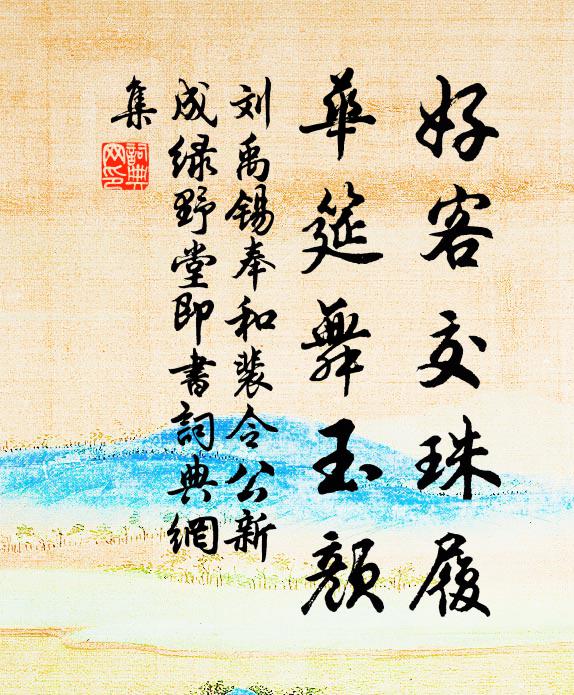 好客交珠履
华筵舞玉颜
刘禹锡奉和裴令公新
成绿野堂即书詞典網
集
詞典
网印